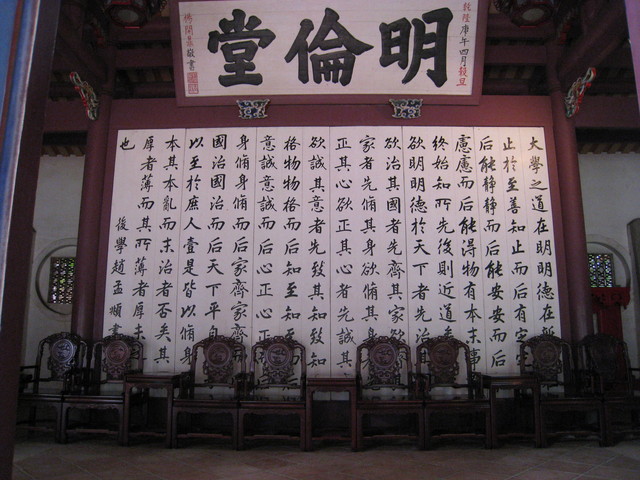 明倫堂
乾隆庚午四月穀旦
大學之道在明明德在新
止於至善知止而后有定
后能靜靜而后能安安而后
慮慮而后能得物有本末事
終始知所先後則近道矣
欲明明德於天下者先治其
欲治其國者先齊其家欲
家者先脩其身欲脩其身
正其心欲正其心者先誠其
欲誠其意者先致其知致知
格物物格而后知至知至而
意誠意誠而后心正心正而后
身脩身脩而后家齊家齊
國治國治而后天下平自
以至於庶人壹是皆以脩身
本其本亂而末治者否矣其
厚者薄而其所薄者厚未
也
後學趙孟頫書